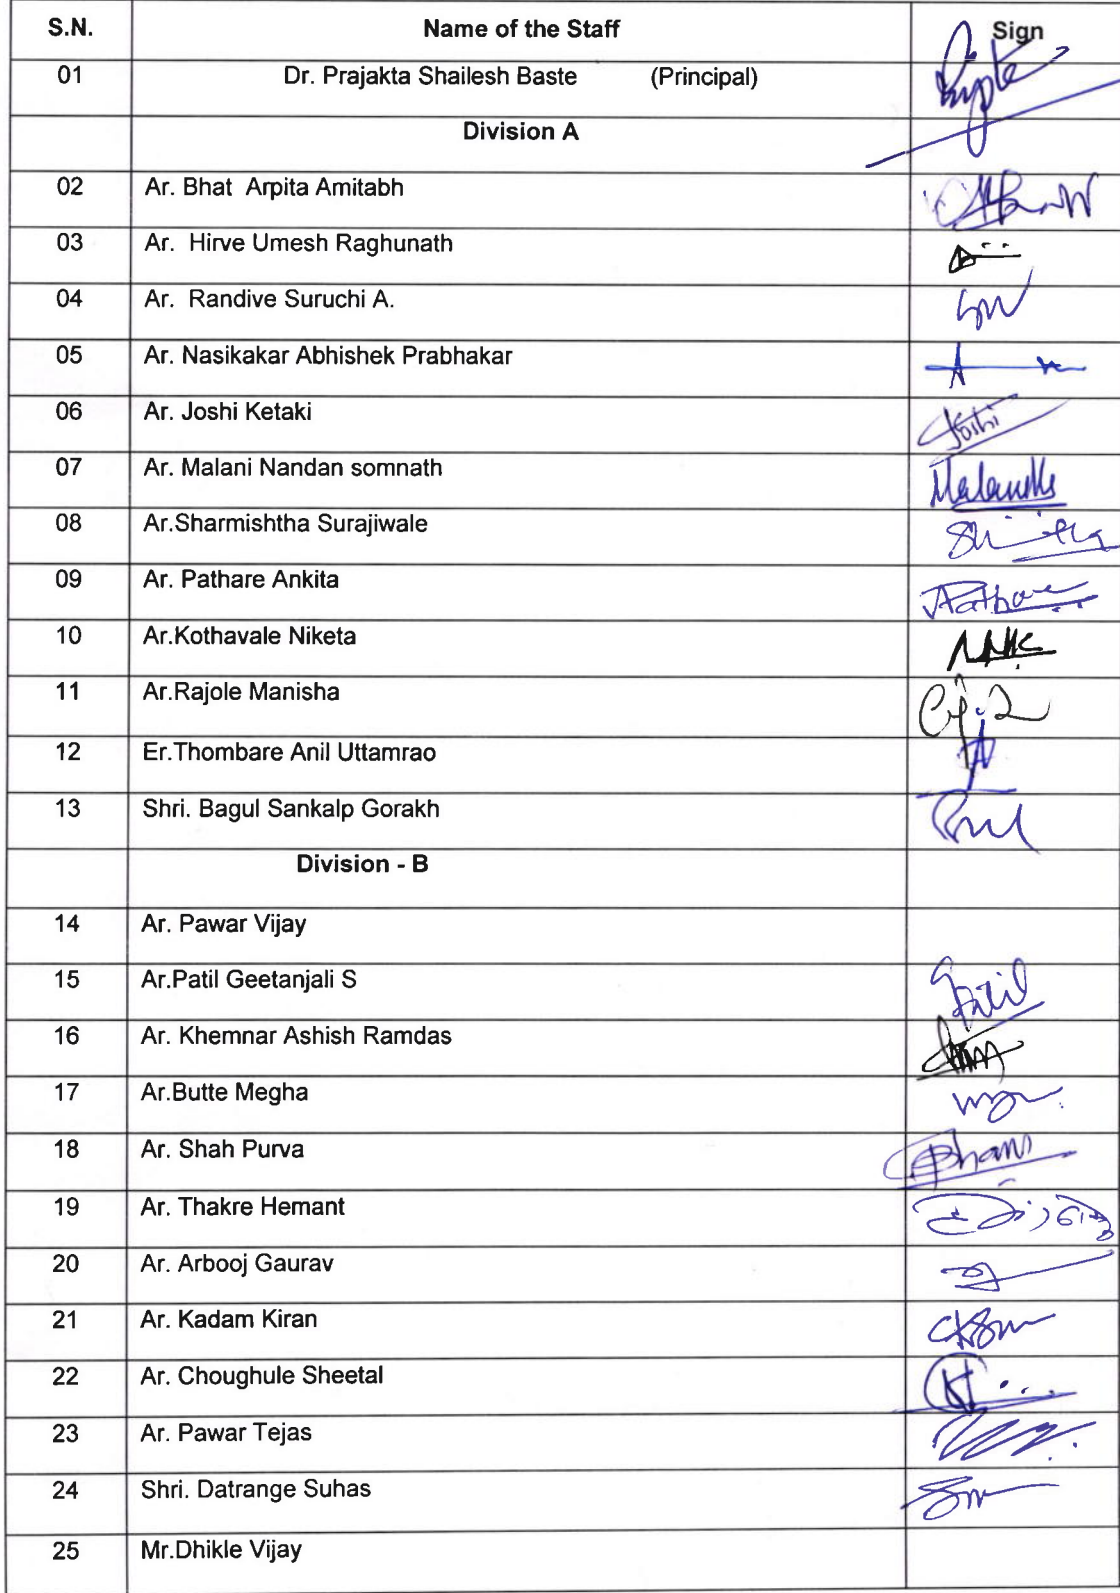 S.N. Name of the Staff Sign
01 Dr. Prajakta Shailesh Baste (Principal)
Division A
02 Ar. Bhat Arpita Amitabh
03 Ar. Hirve Umesh Raghunath
04 Ar. Randive Suruchi A.
05 Ar. Nasikakar Abhishek Prabhakar
06 Ar. Joshi Ketaki Joshi
07 Ar. Malani Nandan somnath
08 Ar.Sharmishtha Surajiwale
09 Ar. Pathare Ankita APathare
10 Ar.Kothavale Niketa
11 Ar.Rajole Manisha
12 Er.Thombare Anil Uttamrao
13 Shri. Bagul Sankalp Gorakh
Division - B
14 Ar. Pawar Vijay
15 Ar.Patil Geetanjali S GPatil
16 Ar. Khemnar Ashish Ramdas
17 Ar.Butte Megha
18 Ar. Shah Purva
19 Ar. Thakre Hemant
20 Ar. Arbooj Gaurav
21 Ar. Kadam Kiran
22 Ar. Choughule Sheetal
23 Ar. Pawar Tejas
24 Shri. Datrange Suhas
25 Mr.Dhikle Vijay